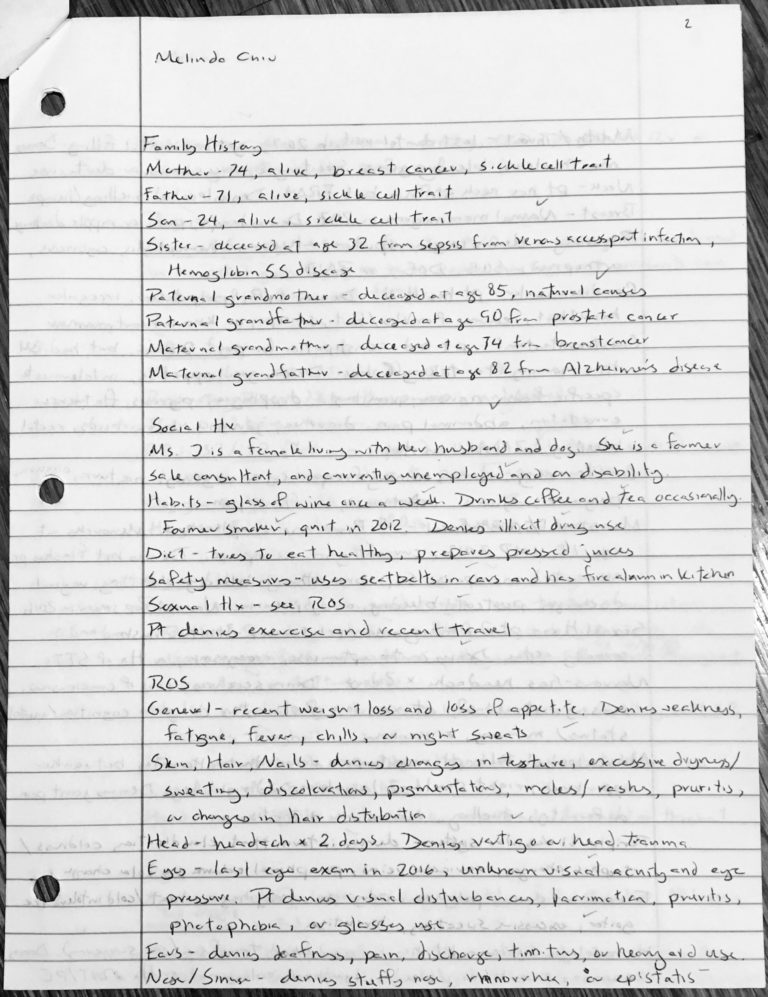 2
Melinda Chiu
Family History
Mother - 74, alive, breast cancer, sickle cell trait
Father - 71, alive, sickle cell trait
Son - 24, alive, sickle cell trait
Sister - deceased at age 32 from sepsis from venous access port infection,
Hemoglobin SS disease
Paternal grandmother - deceased at age 85, natural causes
Paternal grandfather - deceased at age 90 from prostate cancer
Maternal grandmother - deceased at age 74 from breast cancer
Maternal grandfather - deceased at age 82 from Alzheimer's disease
Social Hx
Ms. J is a female living with her husband and dog. She is a former
sale consultant, and currently unemployed and on disability
Habits - glass of wine once a week. Drinks coffee and tea occasionally.
Former smoker, quit in 2012. Denies illicit drug use
Diet - tries to eat healthy, prepares pressed juices
Safety measures - uses seatbelts in cars and has fire alarm in kitchen
Sexual Hx - see ROS
Pt denies exercise and recent travel
ROS
General - recent weight loss and loss of appetite. Denies weakness,
fatigue, fever, chills, or night sweats
Skin, Hair, Nails - denies changes in texture, excessive dryness/
sweating, discolorations, pigmentations, moles/rashes, pruritis,
or changes in hair distribution
Head - headach x 2 days. Denies vertigo or head trauma
Eyes - last eye exam in 2016, unknown visual acuity and eye
pressure. Pt denies visual disturbances, lacrimation, pruritis,
photophobia, or glasses use
Ears - denies deafness, pain, discharge, tinnitus, or hearing aid use.
Nose/Sinuse - denies stuffy nose, rhinorrhea, or epistatis